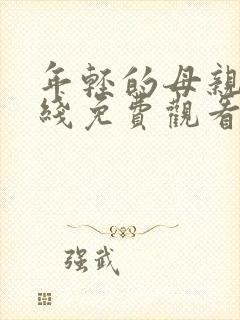 年轻的母親
綫免費觀看
强武